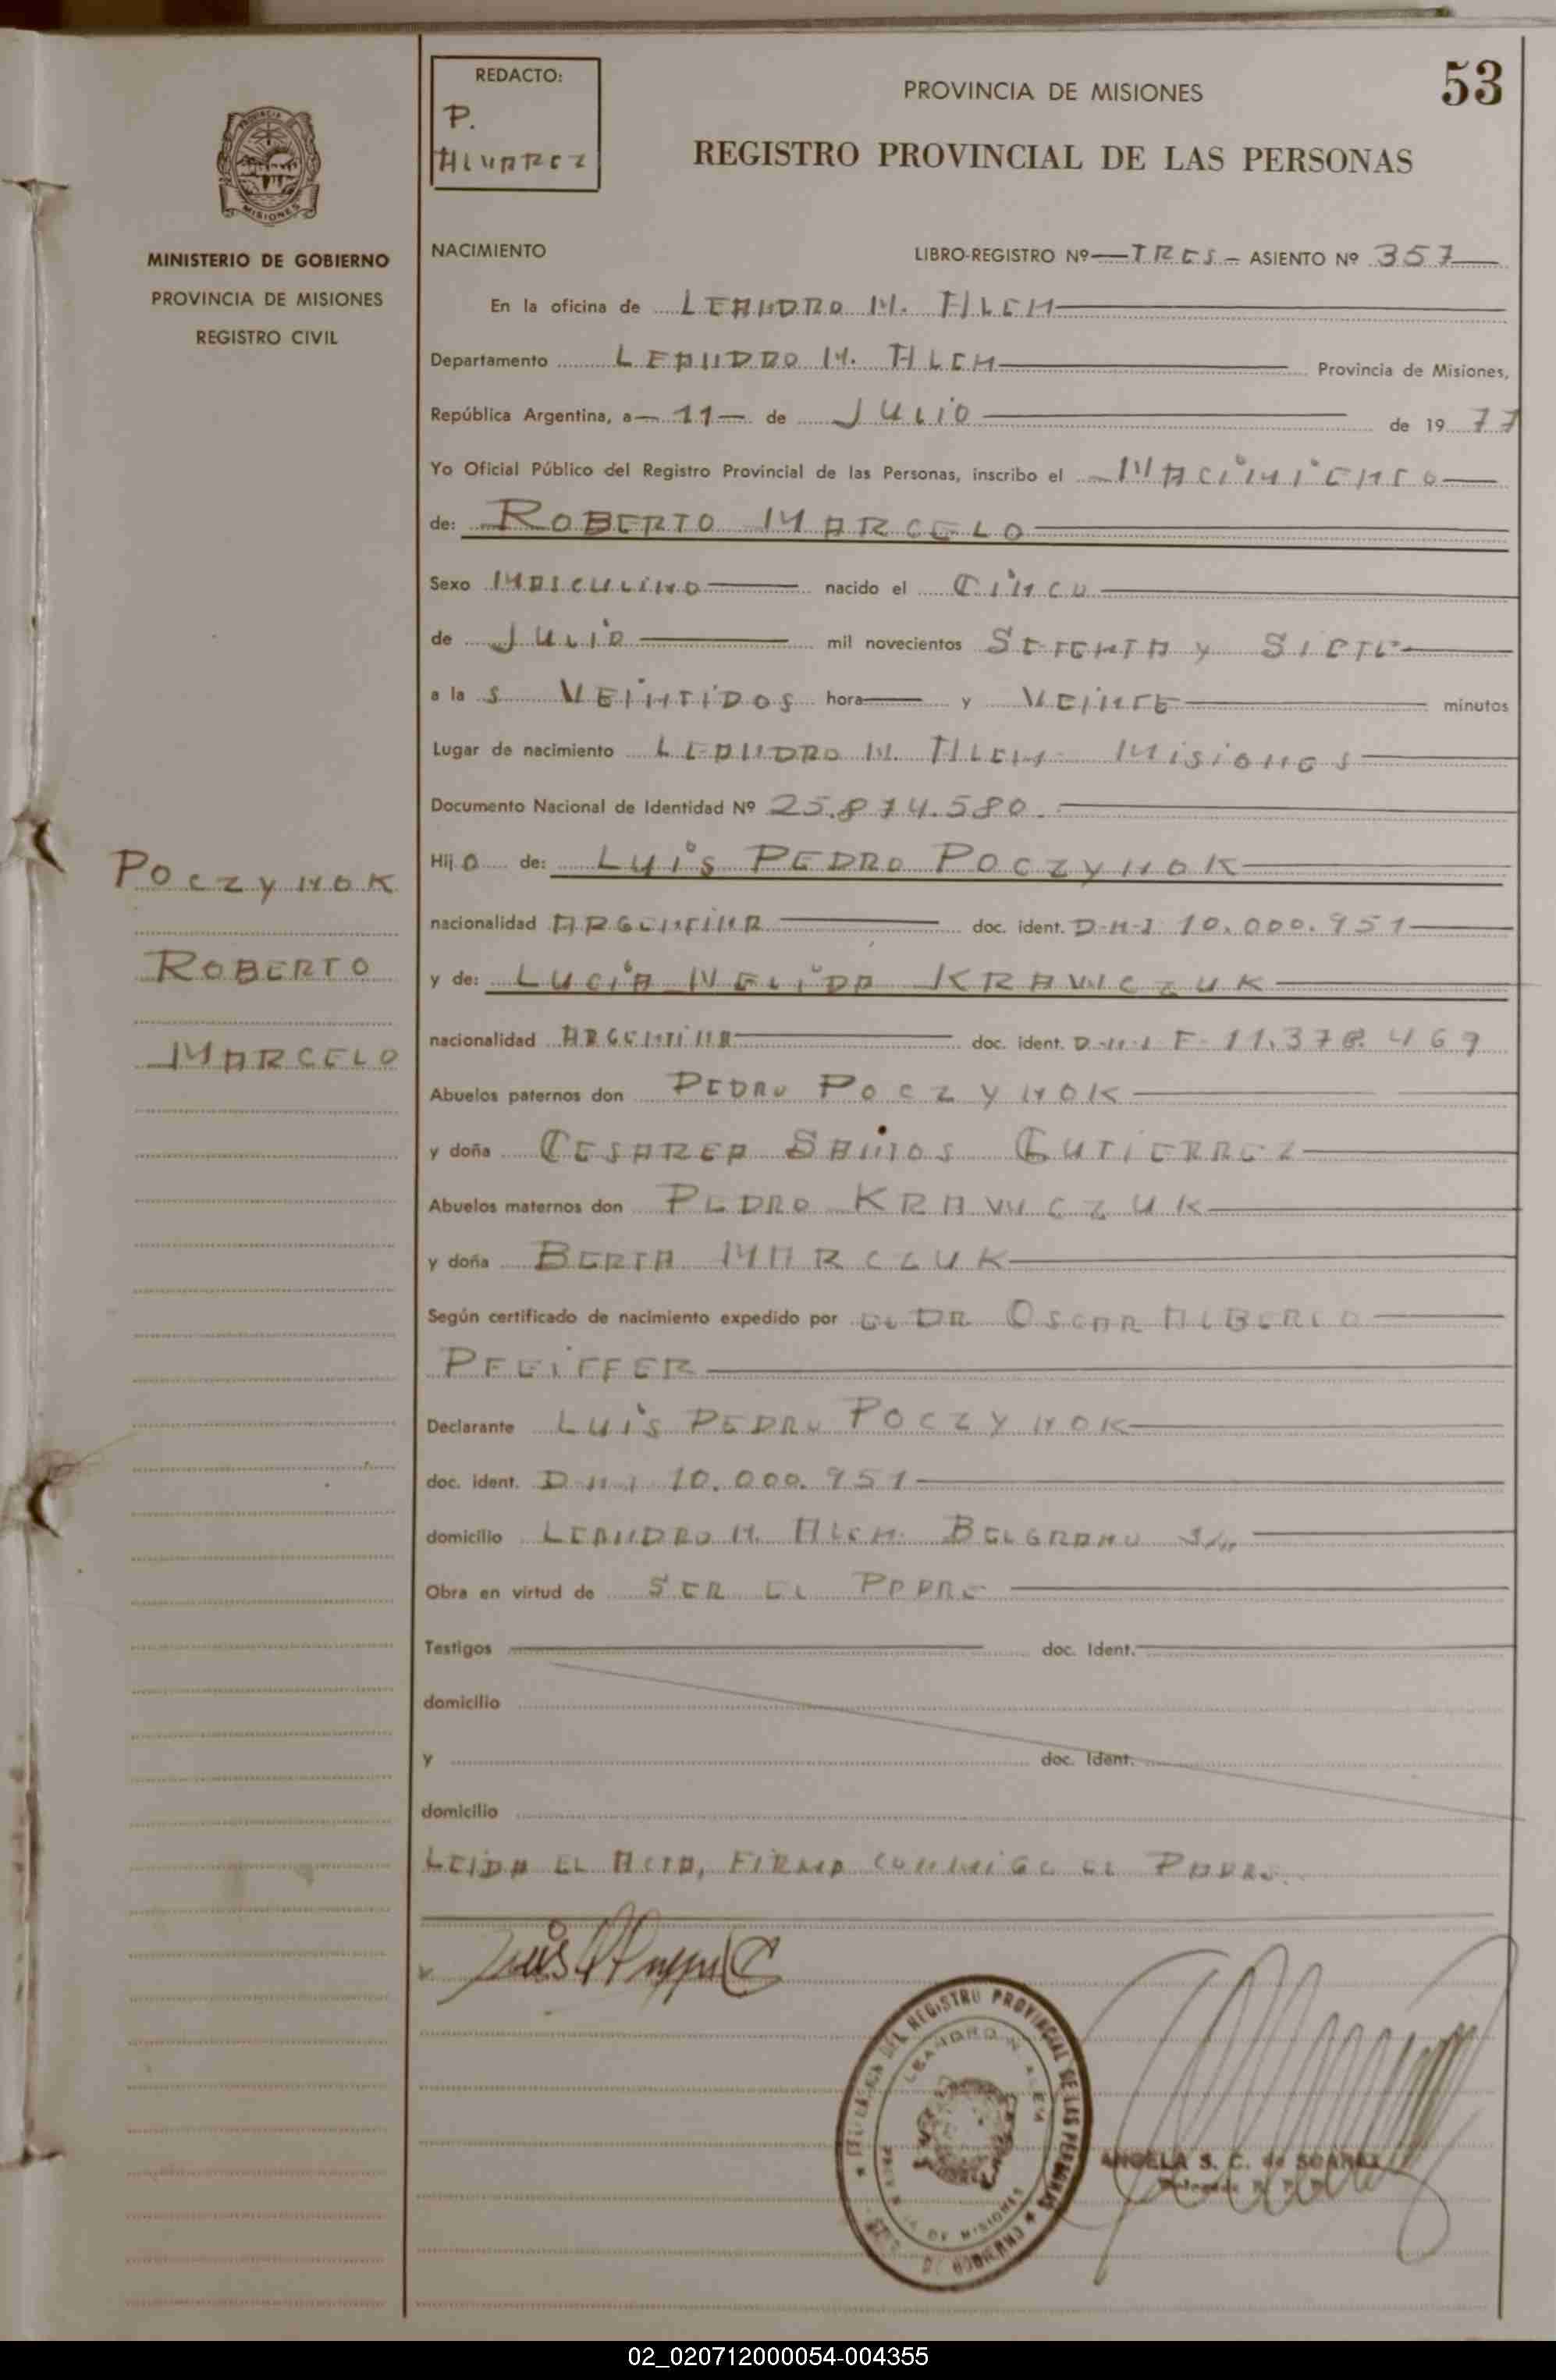 REDACTO:
P.
ALVAREZ
PROVINCIA DE MISIONES
53
REGISTRO PROVINCIAL DE LAS PERSONAS
MISIONES
MINISTERIO DE GOBIERNO
PROVINCIA DE MISIONES
REGISTRO CIVIL
NACIMIENTO
LIBRO-REGISTRO Nº TRES - ASIENTO Nº 357
En la oficina de LEANDRO N. ALEM
Departamento LEANDRO N. ALEM Provincia de Misiones,
República Argentina, a 11 de JULIO de 1977
Yo Oficial Público del Registro Provincial de las Personas, inscribo el NACIMIENTO
de: ROBERTO MARCELO
Sexo MASCULINO nacido el CINCO
de JULIO mil novecientos SETENTA y SIETE
a las VEINTIDOS hora y VEINTE minutos
Lugar de nacimiento LEANDRO N. ALEM - MISIONES
Documento Nacional de Identidad Nº 25.814.580.
POCZYNOK
ROBERTO
MARCELO
Hijo de: LUIS PEDRO POCZYNOK
nacionalidad ARGENTINA doc. ident. D-N-I 10.000.951
y de: LUCIA NELIDA KRAWCZUK
nacionalidad ARGENTINA doc. ident. D-N-I F- 11.378.467
Abuelos paternos don PEDRO POCZYNOK
y doña CESAREA GUTIERREZ
Abuelos maternos don PEDRO KRAWCZUK
y doña BERTA MARCZUK
Según certificado de nacimiento expedido por EL DR. OSCAR ALBERTO
PFEIFFER
Declarante LUIS PEDRO POCZYNOK
doc. ident. D-N-I 10.000.951
domicilio LEANDRO N. ALEM. BELGRANO S/N
Obra en virtud de SER EL PADRE
Testigos doc. Ident.
domicilio
y doc. Ident.
domicilio
LEIDA EL ACTA, FIRMA CONMIGO EL PADRE.
DEL REGISTRO PROVINCIAL DE LAS PERSONAS
LEANDRO N. ALEM
DE MISIONES
DE GOBIERNO
ANGELA S. C. de
02_020712000054-004355